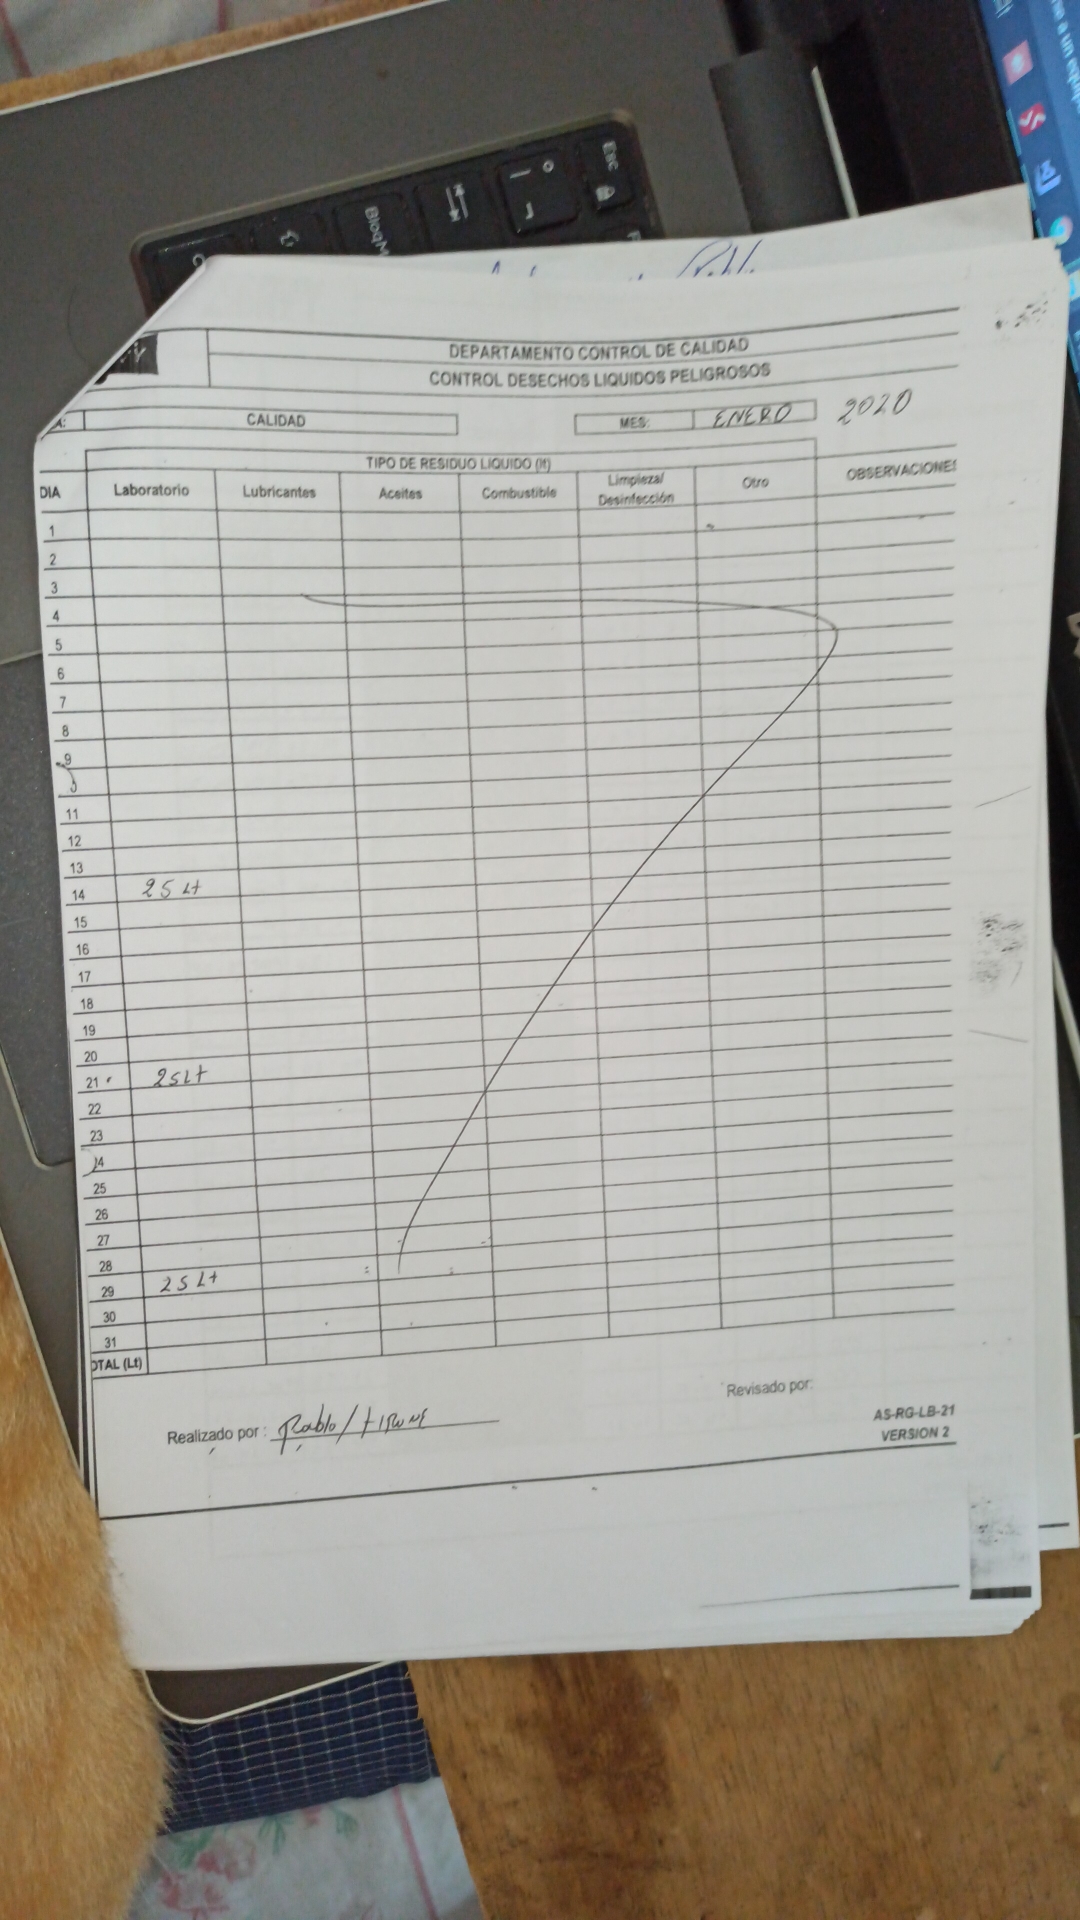 Esc
BloqM
DEPARTAMENTO CONTROL DE CALIDAD
CONTROL DESECHOS LIQUIDOS PELIGROSOS
A: CALIDAD MES: ENERO 2020
TIPO DE RESIDUO LIQUIDO (lt)
DIA Laboratorio Lubricantes Aceites Combustible Limpieza/ Desinfección Otro OBSERVACIONES
1
2
3
4
5
6
7
8
9
0
11
12
13
14 25 Lt
15
16
17
18
19
20
21 25 Lt
22
23
24
25
26
27
28
29 25 Lt
30
31
OTAL (Lt)
Realizado por : Pablo/
Revisado por:
AS-RG-LB-21
VERSION 2